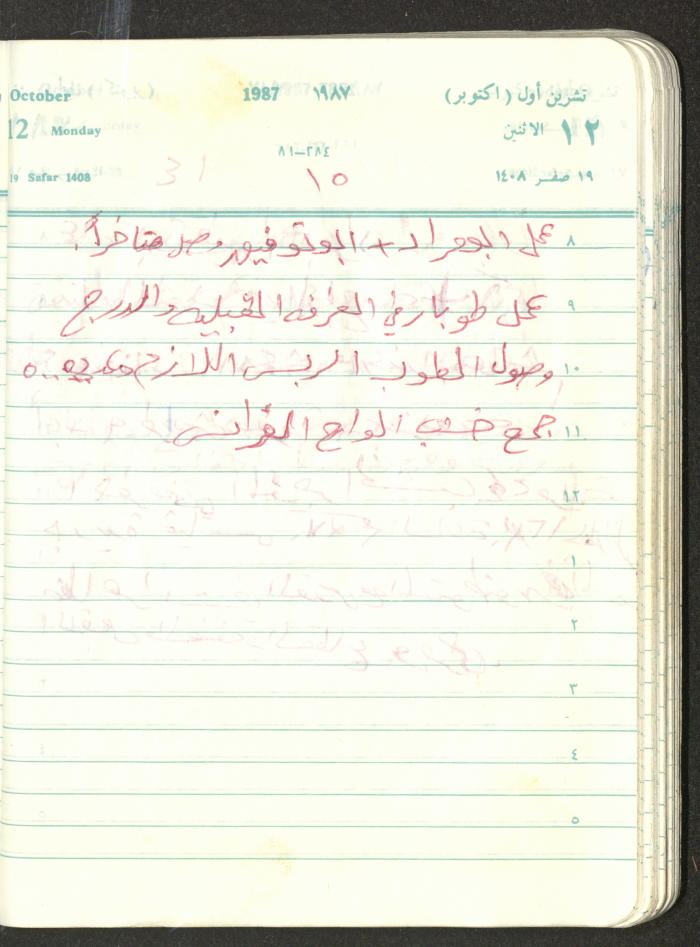 October 1987 ١٩٨٧ تشرين أول (اكتوبر)
12 Monday الاثنين ١٢
٢٨٤-٨١
19 Safar 1408 ١٥ ١٩ صفر ١٤٠٨
٨ عمل ابو مراد + ابو توفيق وصل متاخراً.
٩ عمل طوبار في الغرفه القبليه والدرج
١٠ وصول الطوب الربس اللازم
١١ جمع خشب الواح
١٢
١
٢
٣
٤
٥